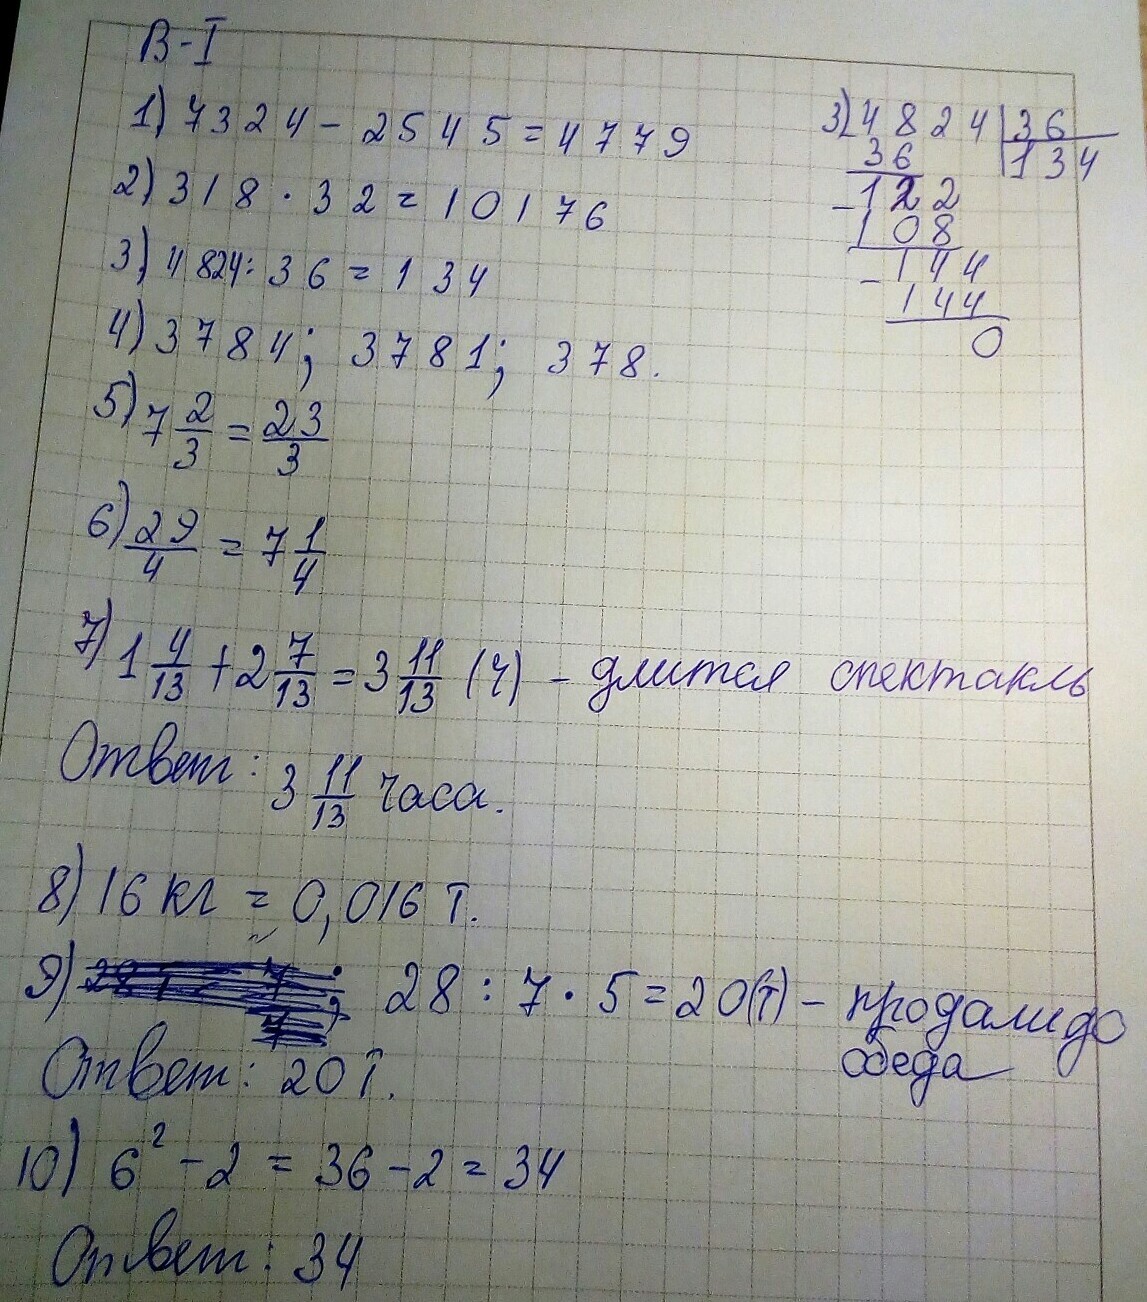 В-I
1) 7324 - 2545 = 4779
2) 318 · 32 = 10176
3) 4824 : 36 = 134
4) 3784; 3781; 378.
5) 7 2/3 = 23/3
6) 29/4 = 7 1/4
7) 1 4/13 + 2 7/13 = 3 11/13 (ч) - длится спектакль
Ответ: 3 11/13 часа.
8) 16 кг = 0,016 т.
9) 28 : 7 · 5 = 20(т) - продали до
обеда
Ответ: 20 т.
10) 6² - 2 = 36 - 2 = 34
Ответ: 34
3) 4824 | 36
36 | 134
- 122
108
- 144
144
0